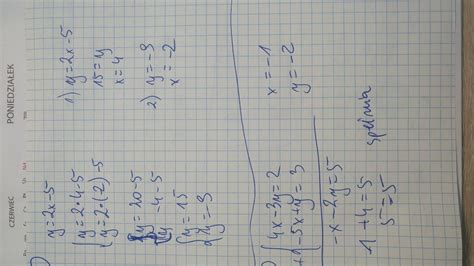 PONIEDZIAŁEK
CZERWIEC
y=2x-5
y=2·4-5
y=2·(-2)-5
y=20-5
-4-5
y=15
y=-9
1) y=2x-5
15=y
x=4
2) y=-9
x=-2
4x-2y=2
+ -5x+y=3
-x-2y=5
1+4=5
5=5
spełnia
x=-1
y=-2